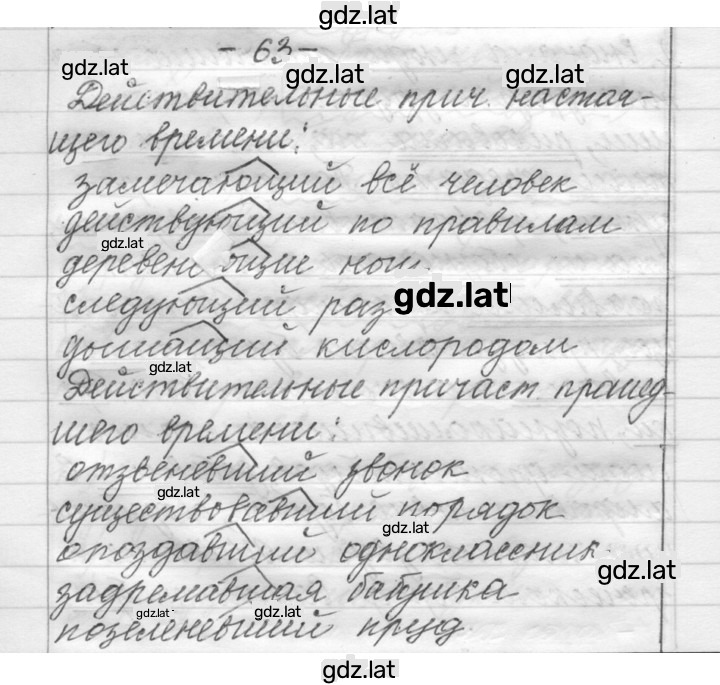 gdz.lat
- 63 -
gdz.lat gdz.lat gdz.lat
Действительные прич. настоя-
щего времени:
замечающий всё человек
действующий по правилам
gdz.lat
деревен ящие ноги.
следующий раз gdz.lat
дышащий кислородом
gdz.lat
Действительные причаст. прошед-
шего времени:
отзвеневший звонок
gdz.lat
существовавший порядок
gdz.lat
опоздавший одноклассник.
gdz.lat
задремавшая бабушка
gdz.lat gdz.lat
позеленевший пруд.
gdz.lat